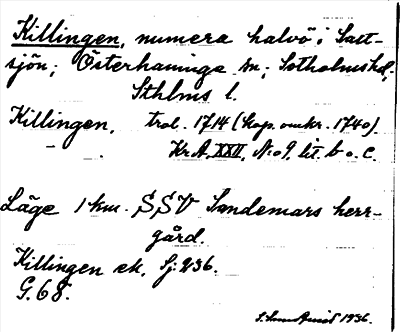 Killingen, numera halvö i Satt-
sjön; Österhaninge sn; Sotholms hd;
Sthlms l.
Killingen, trol. 1714 (kop. omkr. 1740).
Kr.A. XXII, No 9, lit. b o. c.
Läge 1 km. SSV Sandemars herr-
gård.
Killingen ek. Sj: 236.
G. 68.
1936.